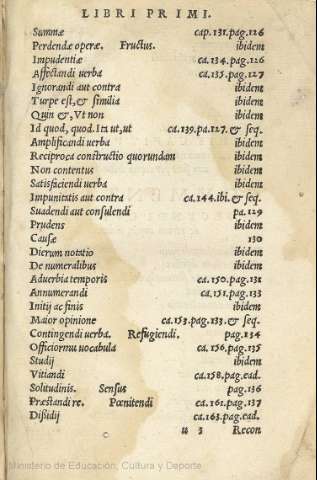 LIBRI PRIMI.
Summæ cap. 131. pag. 126
Perdendæ operæ. Fructus. ibidem
Impudentiæ ca. 134. pag. 126
Affectandi uerba ca. 135. pag. 127
Ignorandi aut contra ibidem
Turpe est, & similia ibidem
Quin &, Vt non ibidem
Id quod, quod. Ita ut, ut ca. 139. pa. 127. & seq.
Amplificandi uerba ibidem
Reciproca constructio quorundam ibidem
Non contentus ibidem
Satisfaciendi uerba ibidem
Impunitatis aut contra ca. 144. ibi. & seq.
Suadendi aut consulendi pa. 129
Prudens ibidem
Causæ 130
Dierum notatio ibidem
De numeralibus ibidem
Aduerbia temporis ca. 150. pag. 131
Annumerandi ca. 151. pag. 133
Initij ac finis ibidem
Maior opinione ca. 153. pag. 133. & seq.
Contingendi uerba. Refugiendi. pag. 134
Officiorum uocabula ca. 156. pag. 135
Studij ibidem
Vitandi ca. 158. pag. ead.
Solitudinis. Sensus pag. 136
Præstandi re. Pœnitendi ca. 161. pag. 137
Dissidij ca. 163. pag. ead.
u 3 Recon
Ministerio de Educación, Cultura y Deporte